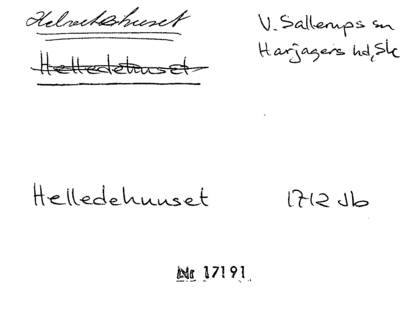 Helveteshuset
V. Sallerups sn
Harjagers hd, Sk
Helledehuset
Helledehuuset 1712 Jb
Nr 17191